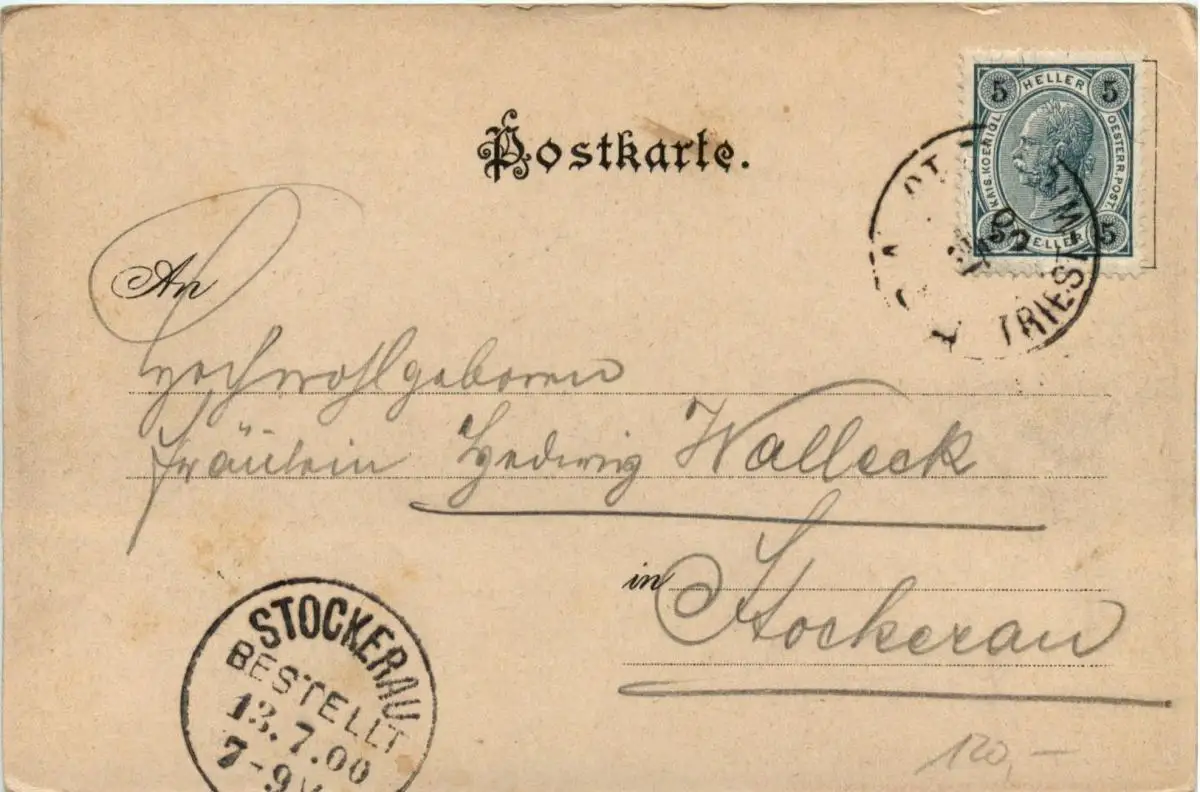 Postkarte.
5 HELLER 5
KAIS. KOENIGL.
OESTERR. POST.
5 HELLER 5
TRIEST
00
An
Hochwohlgeboren
Fräulein Hedwig Walleck
in Stockerau
STOCKERAU
BESTELLT
13.7.00
7-9V
120,-